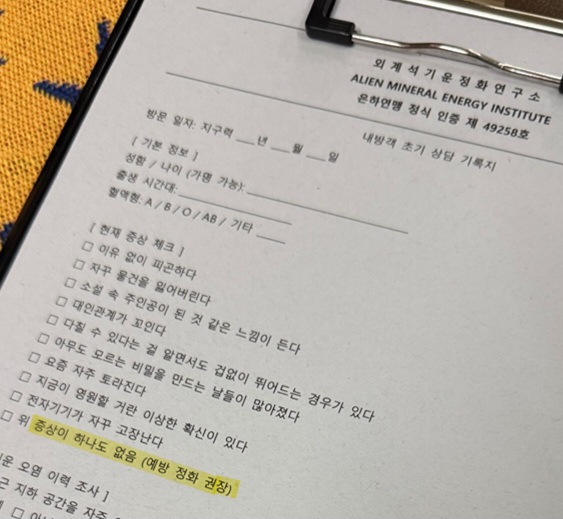 외계석기운정화연구소
ALIEN MINERAL ENERGY INSTITUTE
은하연맹 정식 인증 제 49258호
내방객 초기 상담 기록지
방문 일자: 지구력 ___년 ___월 ___일
[ 기본 정보 ]
성함 / 나이 (가명 가능):
출생 시간대:
혈액형: A / B / O / AB / 기타 ____
[ 현재 증상 체크 ]
□ 이유 없이 피곤하다
□ 자꾸 물건을 잃어버린다
□ 소설 속 주인공이 된 것 같은 느낌이 든다
□ 대인관계가 꼬인다
□ 다칠 수 있다는 걸 알면서도 겁없이 뛰어드는 경우가 있다
□ 아무도 모르는 비밀을 만드는 날들이 많아졌다
□ 요즘 자주 토라진다
□ 지금이 영원할 거란 이상한 확신이 있다
□ 전자기기가 자꾸 고장난다
□ 위 증상이 하나도 없음 (예방 정화 권장)
오염 이력 조사 ]
지하 공간을 자주